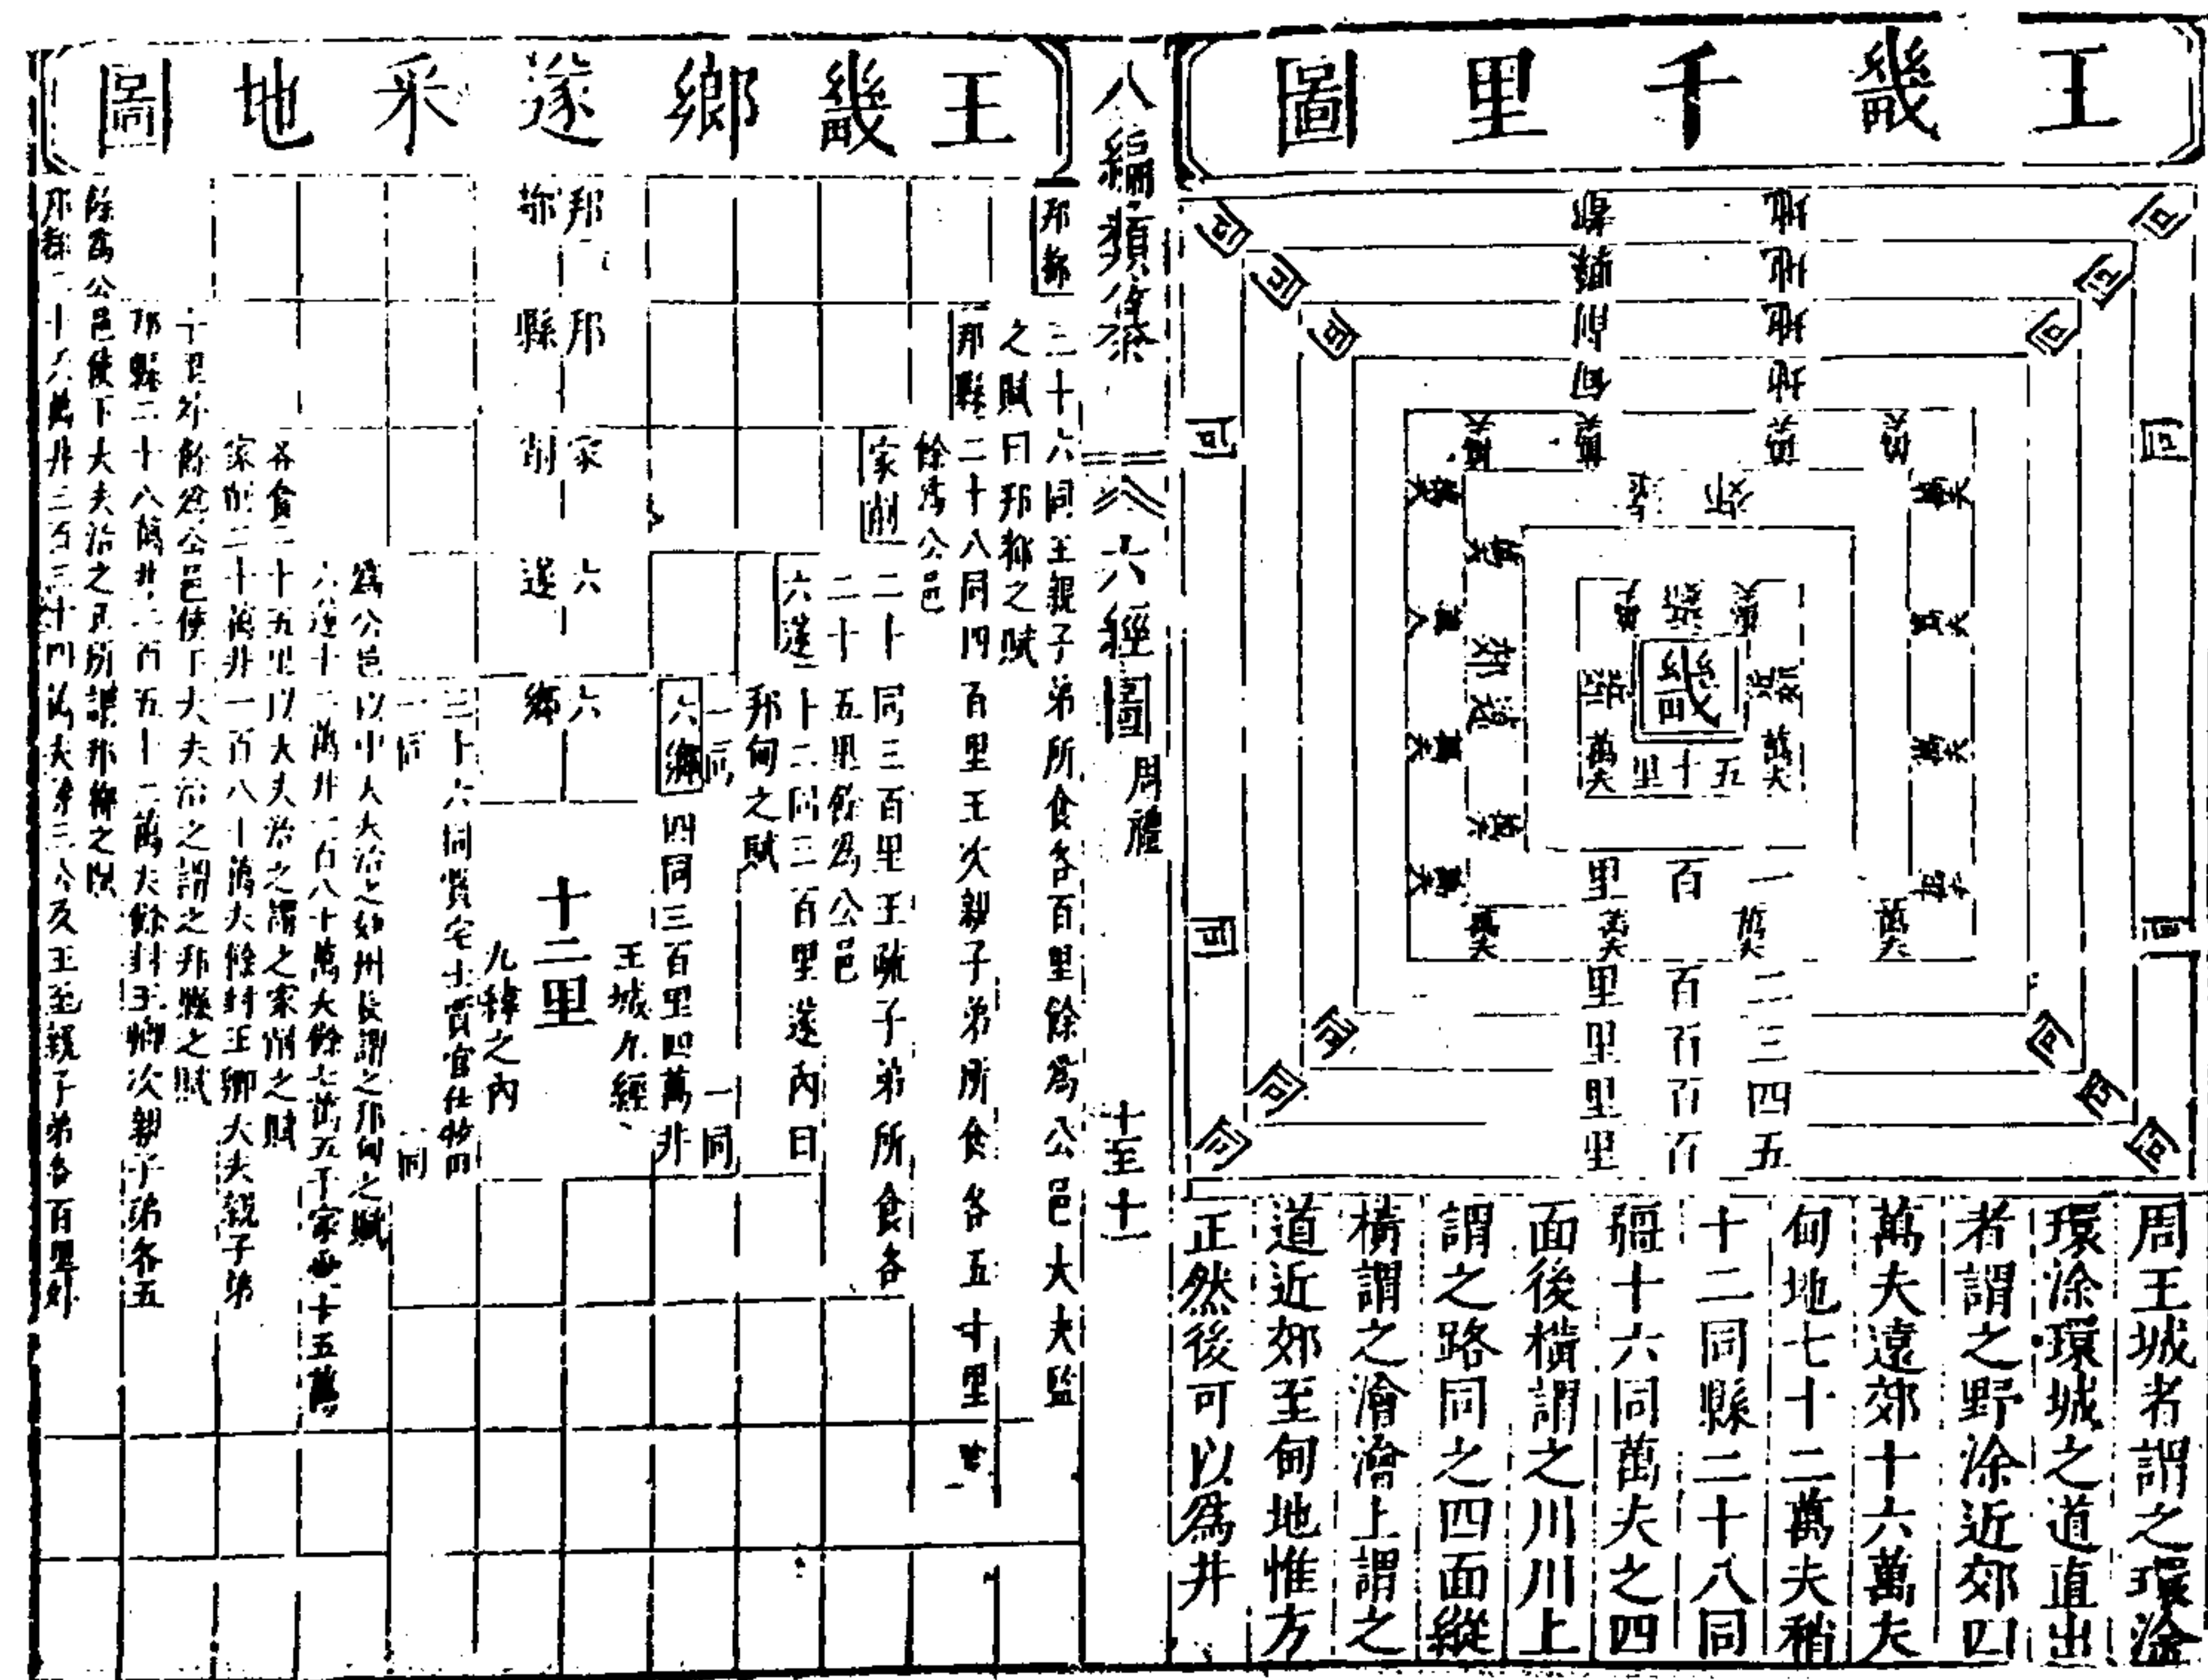 王畿千里圖
都 地
縣 地
削 地
甸 地
萬夫 萬夫 萬夫 萬夫
遠 郊
近郊
畿
近郊 近郊
萬夫 五十里 萬夫
郊遠
一百里
萬夫 萬夫 萬夫 萬夫
二百里
三百里
四百里
五百里
同 同 同 同
周王城者謂之環涂
環涂環城之道直出
者謂之野涂近郊四
萬夫遠郊十六萬夫
甸地七十二萬夫稍
十二同縣二十八同
疆十六同萬夫之四
面後橫謂之川川上
謂之路同之四面縱
橫謂之澮澮上謂之
道近郊至甸地惟方
正然後可以為井
八編類纂 六經圖 周禮 十至十一
王畿鄉遂采地圖
邦都 三十六同王親子弟所食各百里餘為公邑大夫監
之賦曰邦都之賦
邦縣 二十八同四百里王次親子弟所食各五十里
餘為公邑
家削 二十同三百里王疏子弟所食各
二十五里餘為公邑
六遂 十二同二百里遂內曰
邦甸之賦
一同 一同
六鄉 四同三百里四萬井
王城九經
邦都
邦縣
家削
六遂
六鄉
十二里
九緯之內
三十六同賈宅士賈官仕
一同 一同
為公邑以中大夫治之如州長謂之邦甸之賦
六遂十二萬井一百八十萬夫餘七萬五千家
各食二十五里以大夫治之謂之家削之賦
家削二十萬井一百八十萬夫餘封王卿大夫親子弟
十里外餘為公邑使下大夫治之謂之邦縣之賦
邦縣二十八萬井二百五十二萬夫餘封王卿次親子弟各五
餘為公邑使下大夫治之所謂邦都之賦
邦都三十六萬井三百二十四萬夫 三公及王至親子弟各百里外